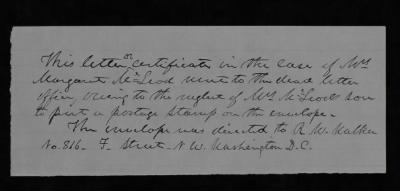 This letter or certificate in the case of Mrs
Margaret McLeod went to the dead letter
office, owing to the neglect of Mrs McLeods son
to put a postage stamp on the envelope.
The envelope was directed to R. W. Walker
No. 816. F. Street. N W. Washington D.C.